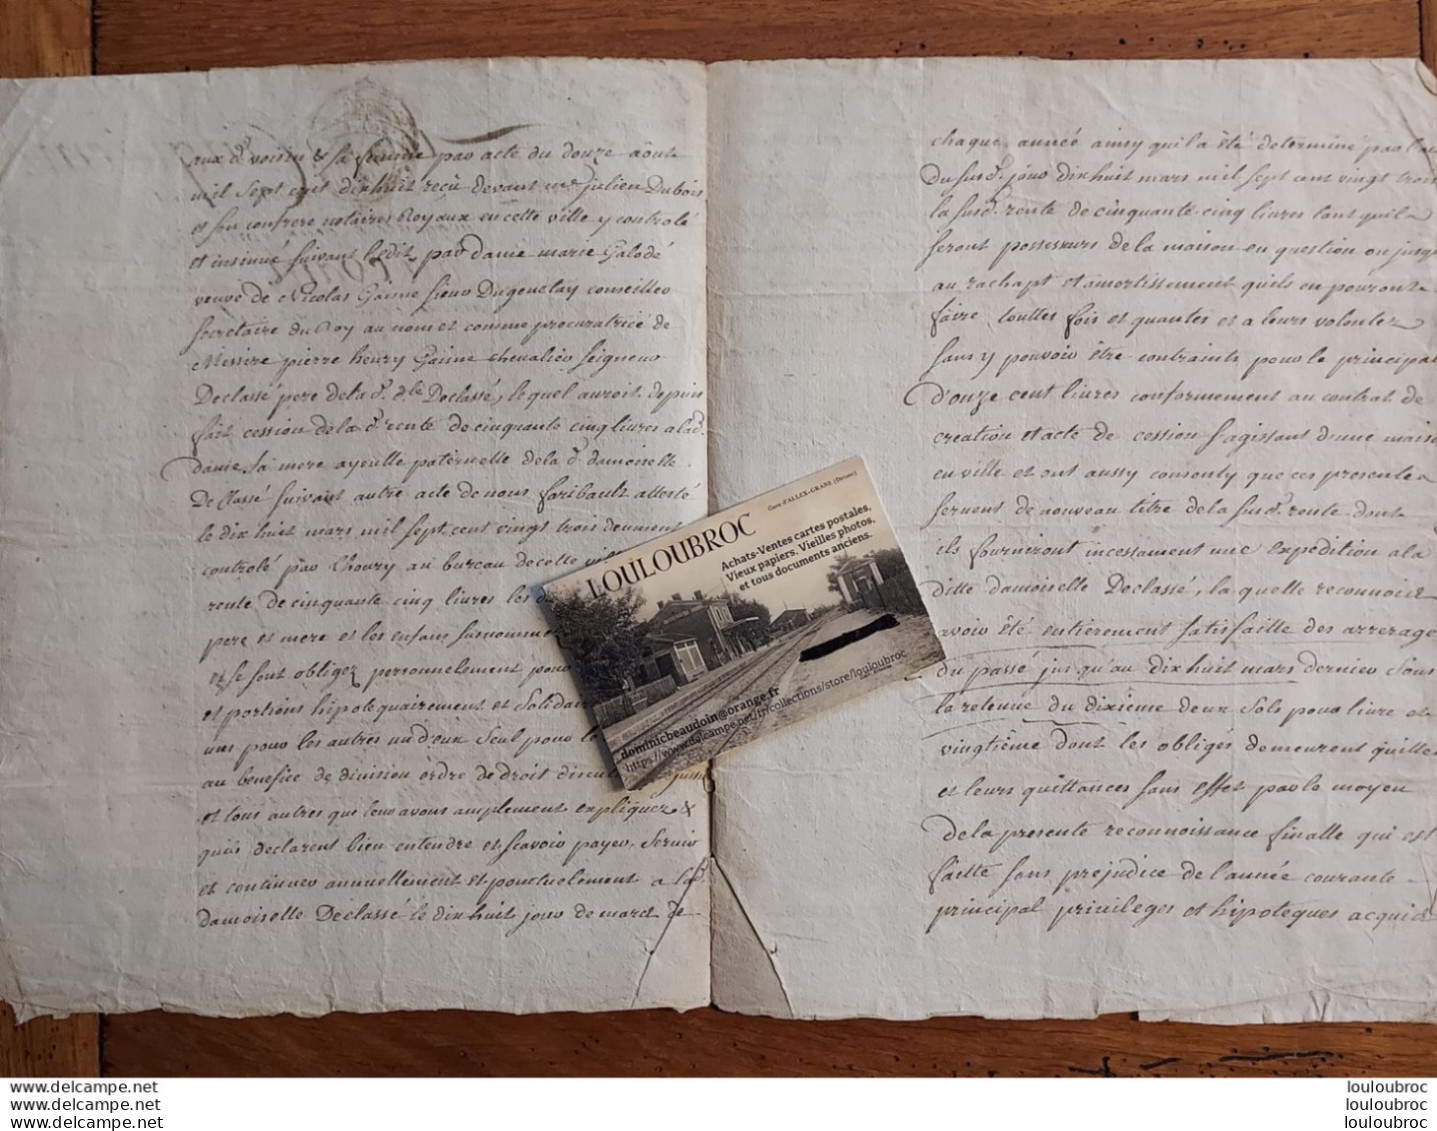 aux d. voisin & sa femme par acte du douze aôut
mil sept cent dixhuit reçu devant me. julien Dubois
et son confrere notaires Royaux en cette ville y controlé
et insinué suivant ledit par dame marie Galodé
veuve de Nicolas Gaime sieur Dugenetay conseiller
secretaire du Roy au nom et comme procuratrice de
Messire pierre henry Gaime chevalier seigneur
Declassé pere de la d. dlle Declassé, lequel auroit depuis
fait cession de la d. rente de cinquante cinq livres a lad.
dame, sa mere ayeulle paternelle de la d. damoiselle
De Classé suivant autre acte de nous faribault attesté
le dix huit mars mil sept cent vingt trois deument
controlé par Choury au bureau de cette
rente de cinquante cinq livres les
pere et mere et les enfans surnomme
et se sont obligez personnelement pour
et portions hipotequairement et solidair
uns pour les autres un d'eux seul pour le
au benefice de division ordre de droit discu
et tous autres que leur avons amplement expliquez &
quils declarent bien entendre et scavoir payer, servir
et continuer annuellement et ponctuelement a la d.
damoiselle Declassé le dix huit jour de mars de
chaque année ainsy quil a été determiné par l'
du susd. jour dixhuit mars mil sept cent vingt trois
la susd. rente de cinquante cinq livres tant quils
seront possesseurs de la maison en question ou jusqu
au rachapt et amortissement quils en pouront
faire touttes fois et quantes et a leurs volontez
sans y pouvoir être contraints pour le principal
D'ouze cent livres conformement au contrat de
creation et acte de cession s'agissant d'une maison
en ville et ont aussy consenty que ces presentes
servent de nouveau titre de la susd. rente dont
ils fourniront incessament une expédition a la
ditte damoiselle Declassé, la quelle reconnoist
avoir été entierement satisfaitte des arrerages
du passé jusqu'au dix huit mars dernier sous
la retenue du dixième deux sols pour livre et
vingtième dont les obligés demeurent quittes
et leurs quittances sans effet par le moyen
de la presente reconnoissance finalle qui est
faitte sans prejudice de l'année courante
principal privileges et hipoteques acquis
Gare d'ALLEX-GRANE (Drome)
LOULOUBROC
Achats-Ventes cartes postales,
Vieux papiers, Vieilles photos,
et tous documents anciens.
dominicbeaudoin@orange.fr
https://www.delcampe.net/fr/collections/store/louloubroc
www.delcampe.net
www.delcampe.net
www.delcampe.net
louloubroc
louloubroc
louloubroc